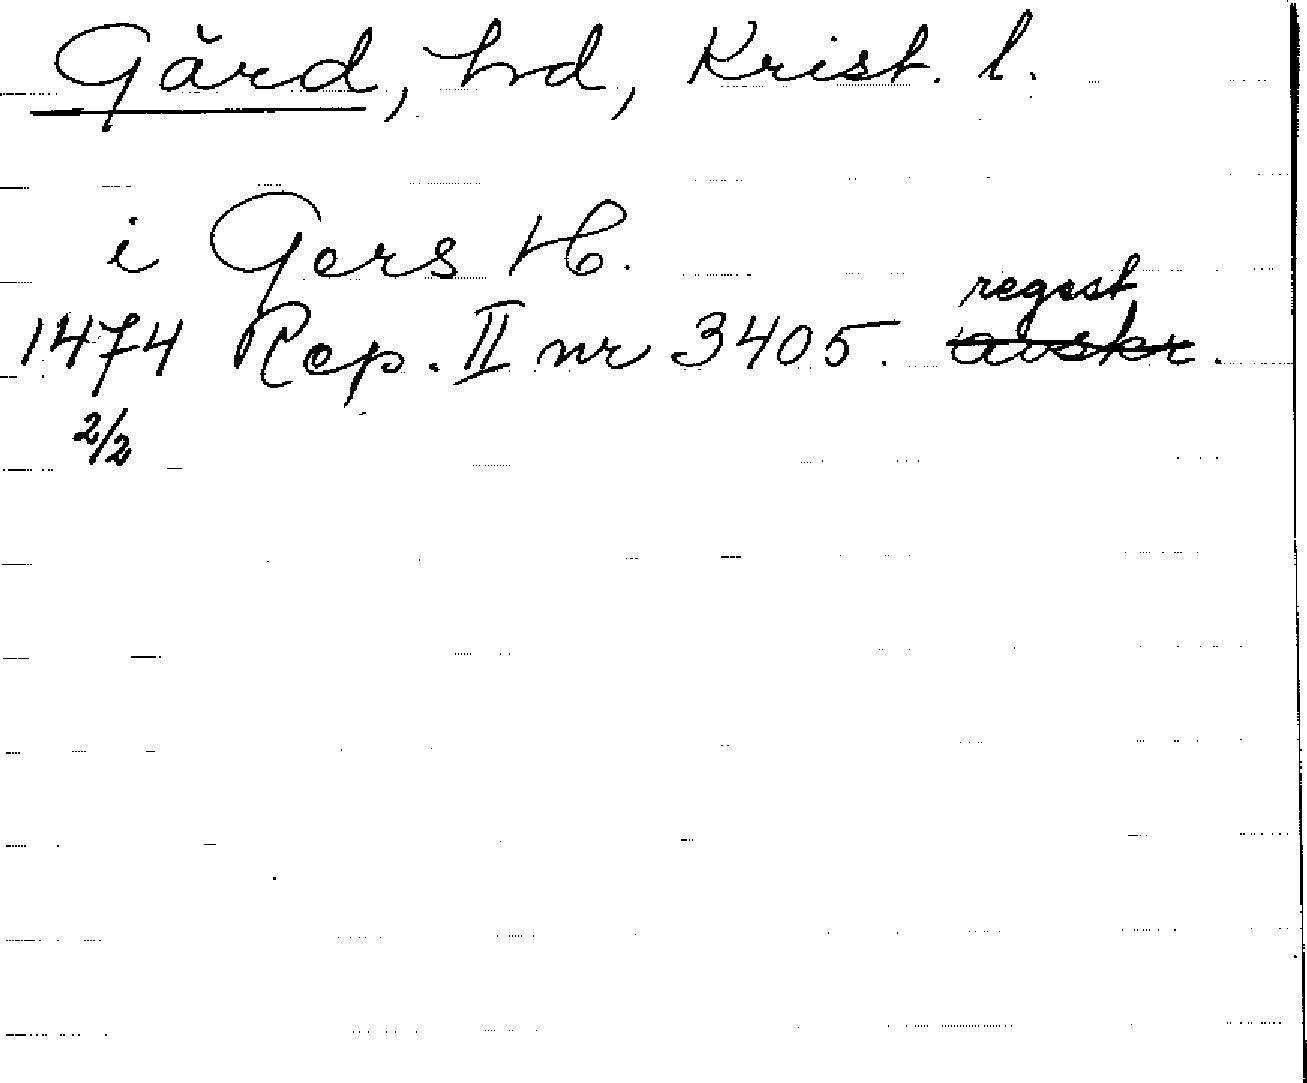 Gård, hd, Krist. l.
i Gers H.
regest
1474 Rep. II nr 3405. avskr.
2/2